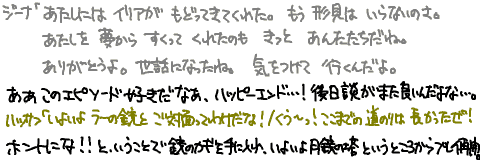 ジーナ「あたしには イリアが もどってきてくれた。もう 形見は いらないのさ。
あたしを 夢から すくって くれたのも きっと あんたたちだね。
ありがとうよ。世話になったね。気をつけて 行くんだよ。
ああこのエピソード好きだなあ、ハッピーエンド…！後日談がまた良いんだよな…。
ハッサン「いよいよ ラーの鏡と ご対面ってわけだな！くう〜っ！ここまでの 道のりは 長かったぜ！
ホントにな！！と、いうことで鏡のカギを手に入れ、いよいよ月鏡の塔 というところからプレイ再開